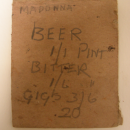 MADONNA
BEER
1/1 PINT
BITTER
1/6
GIGS 3/6
20